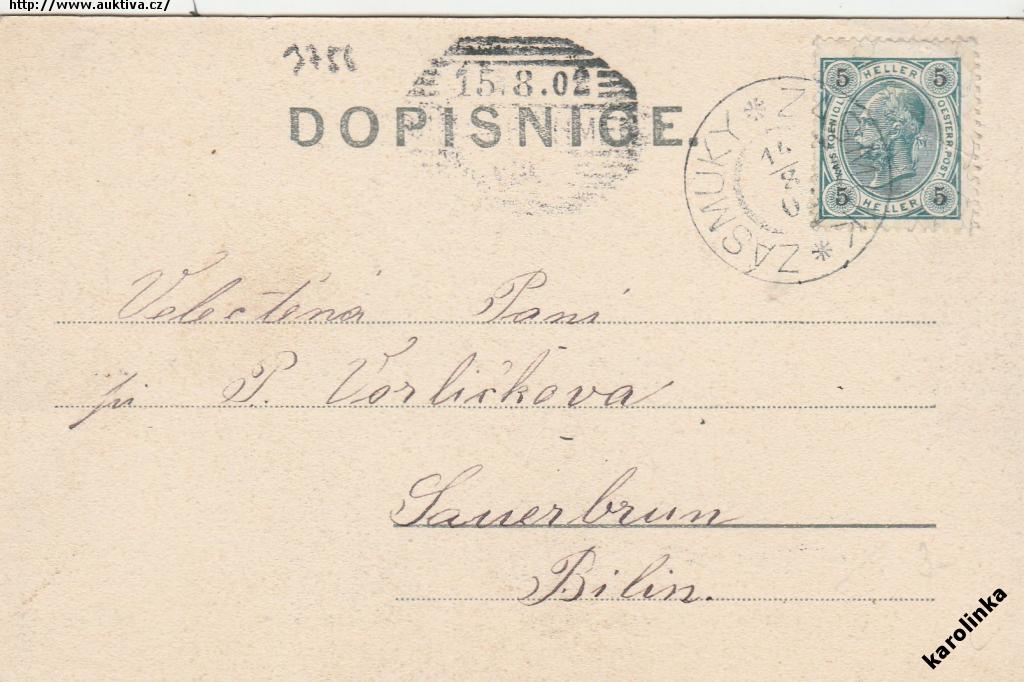 http://www.auktiva.cz/
3756
15.8.02
DOPISNICE.
ZÁSMUKY
14/8
5 HELLER 5
KAIS.KOENIGL. OESTERR.POST
5 HELLER 5
Velectěná Paní
P. Vorlíčkova
Sauerbrun
Bilin.
karolinka